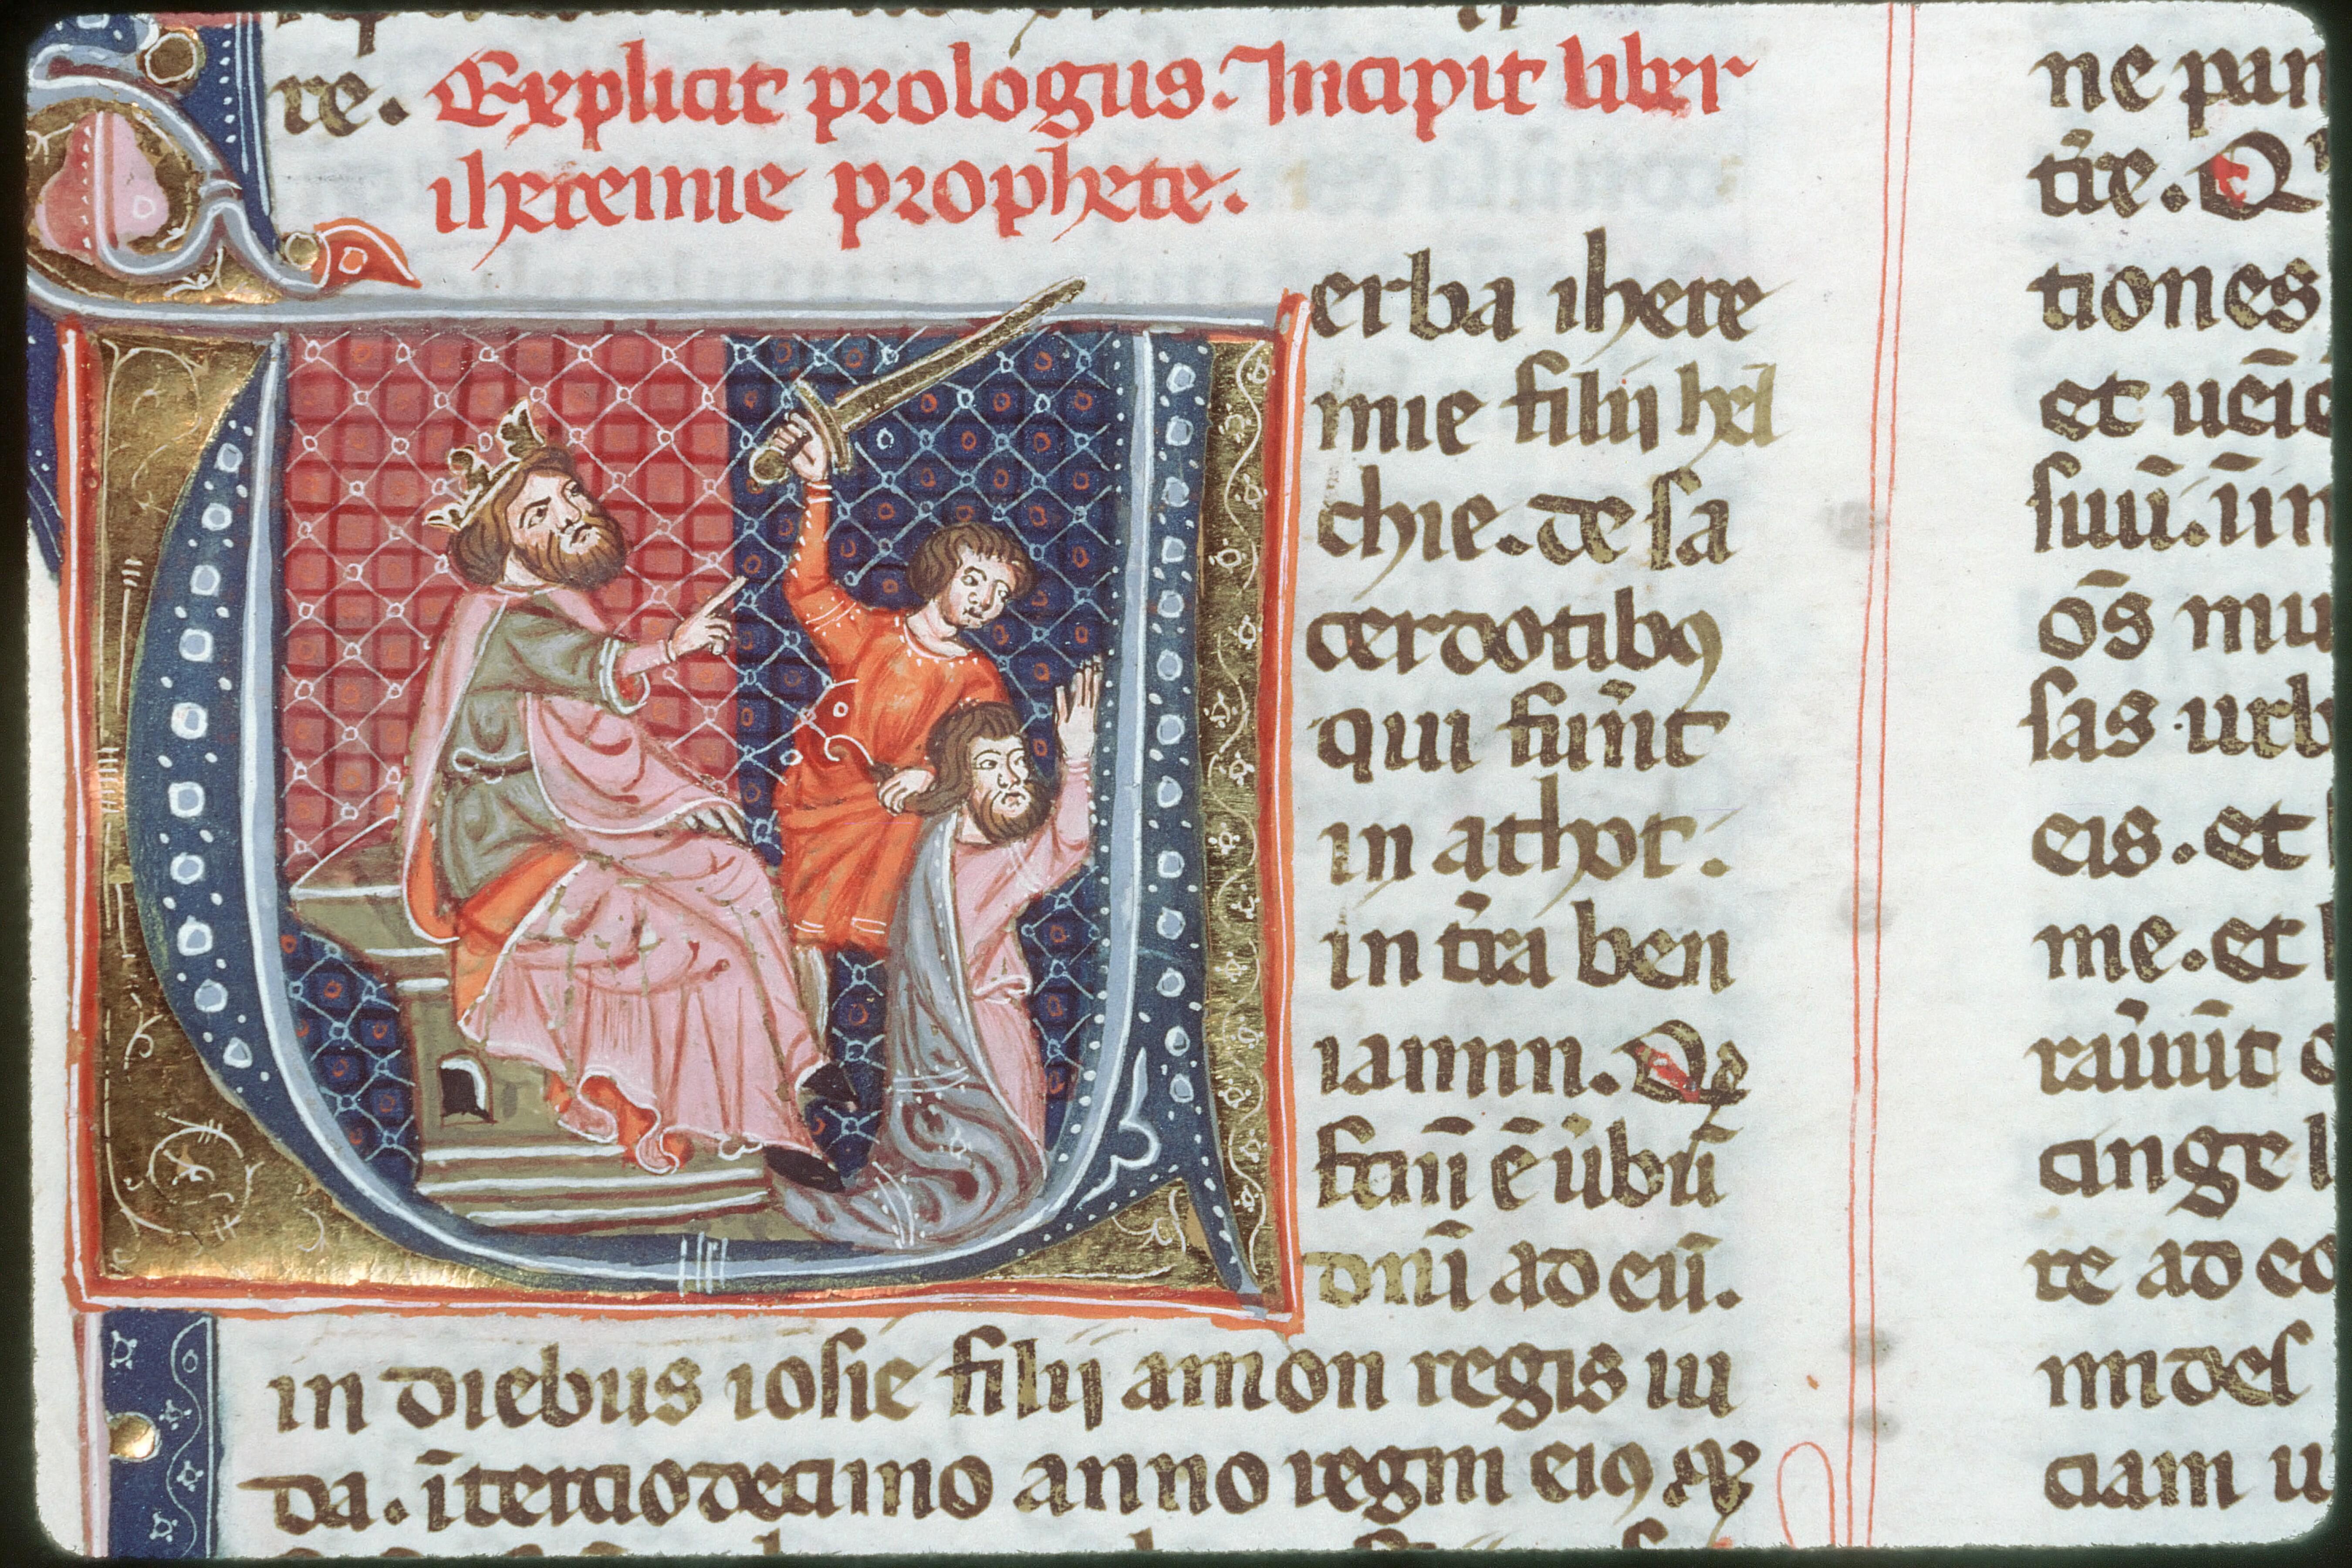 re. Explicit prologus. Incipit liber
iheremie prophete.
erba ihere
mie filii hel
chie. de sa
cerdotibꝯ
qui fuͬnt
in athot.
in tͬra ben
iamin. Qd̓
fctū ē ūbū
dnī ad eū.
in diebus iosie filij amon regis iu
da. ī terciodecimo anno regni eiꝯ
ne pan
tͬre. Q
tiones
et uēiē
suū. ūn
ōs mu
sas urb
eis. et
me. et
rauūt
angel
re ad eo
mi del
ciam u